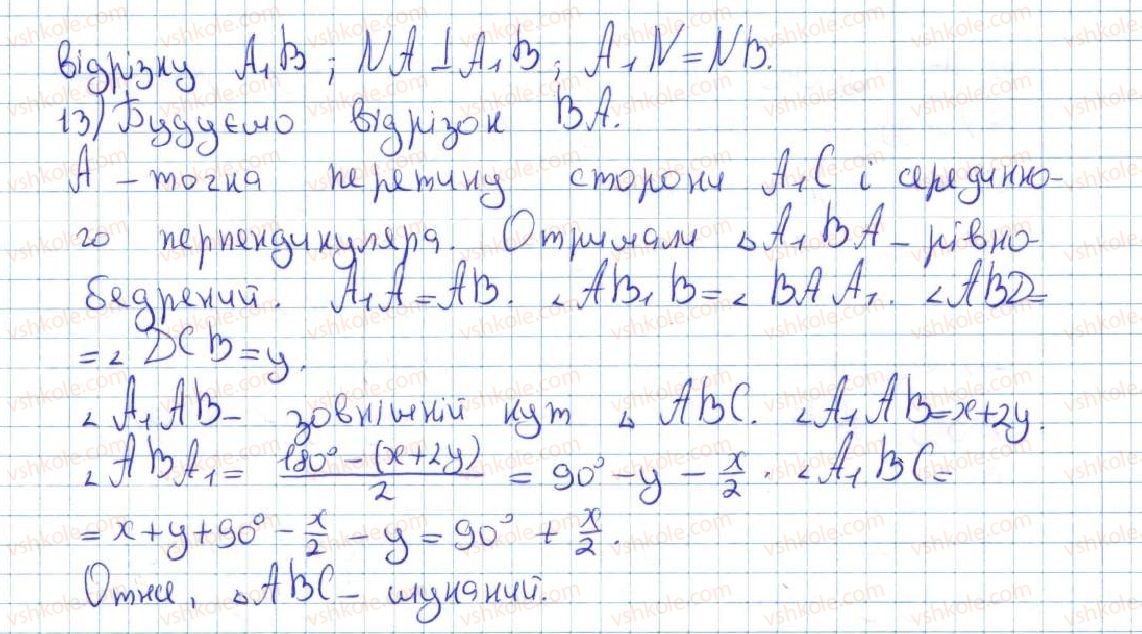 відрізку A₁B; NA ⊥ A₁B; A₁N = NB.
13) Будуємо відрізок BA.
A – точка перетину сторони A₁C і серединно-
го перпендикуляра. Отримали △A₁BA – рівно-
бедрений. A₁A = AB. ∠AB₁B = ∠BAA₁. ∠ABD =
= ∠DCB = y.
∠A₁AB – зовнішній кут △ABC. ∠A₁AB = x + 2y.
∠ABA₁ = (180° – (x + 2y))/2 = 90° – y – x/2. ∠A₁BC =
= x + y + 90° – x/2 – y = 90° + x/2.
Отже, △ABC – шуканий.